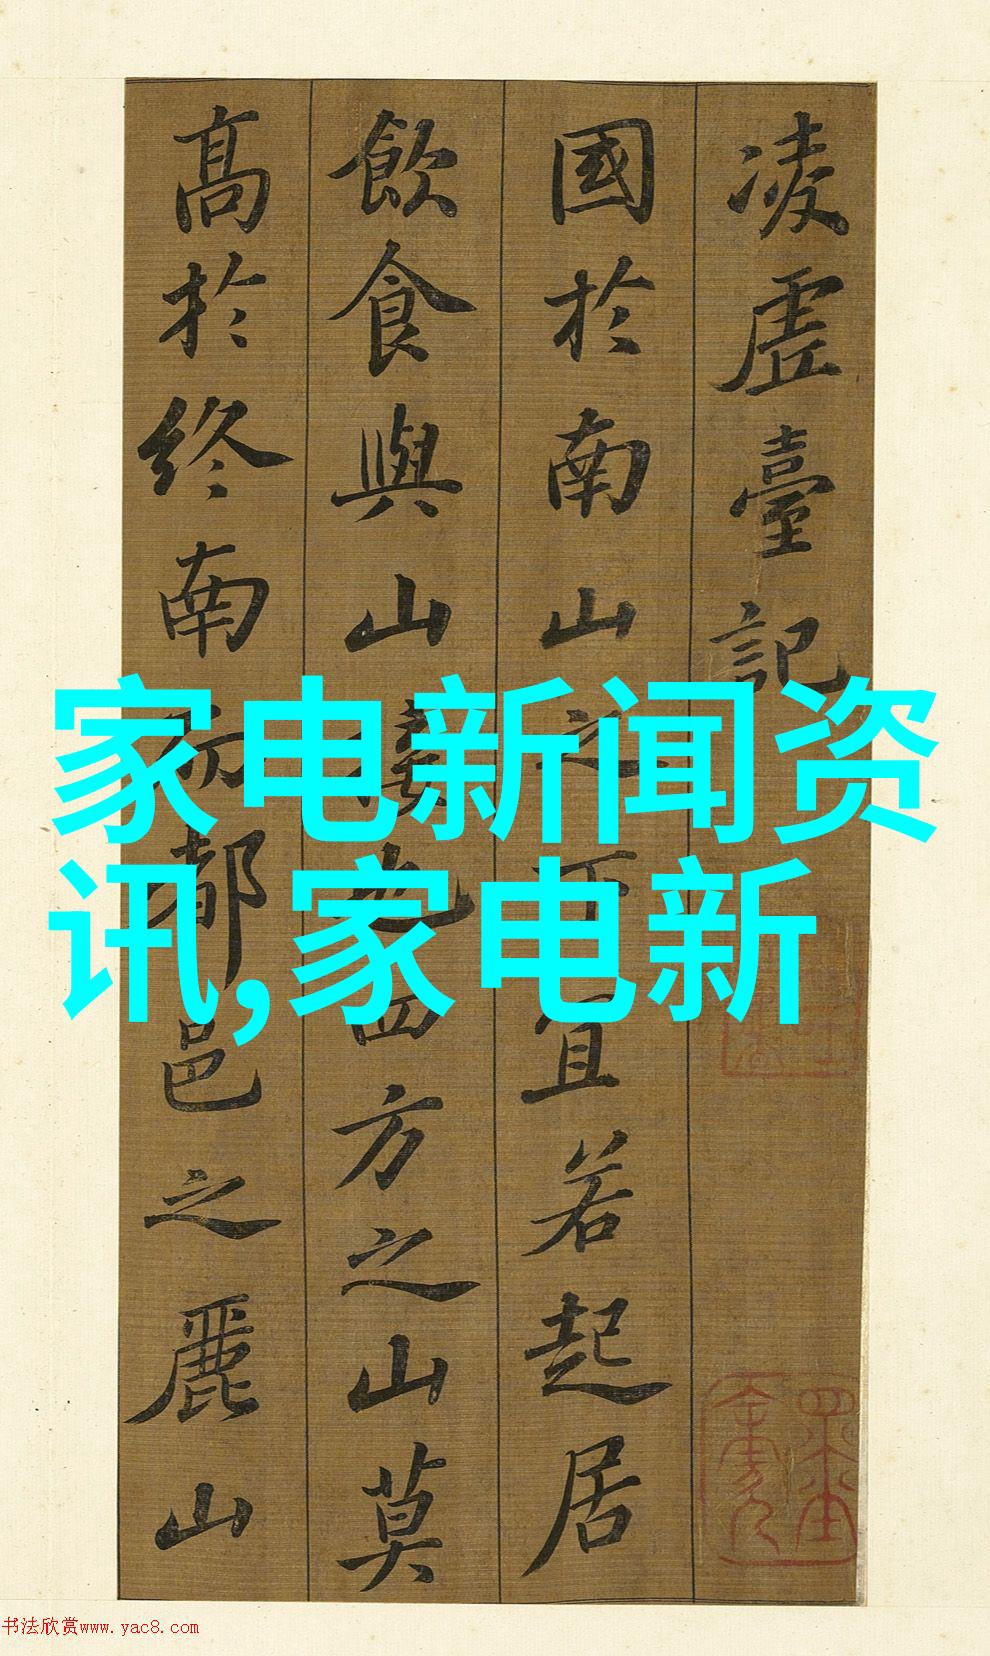 凌虛臺記
國於南山之下宜若起居
飲食與山接也四方之山莫
高於終南而都邑之麗山
家电新闻资
讯,家电新
书法欣赏www.yac8.com